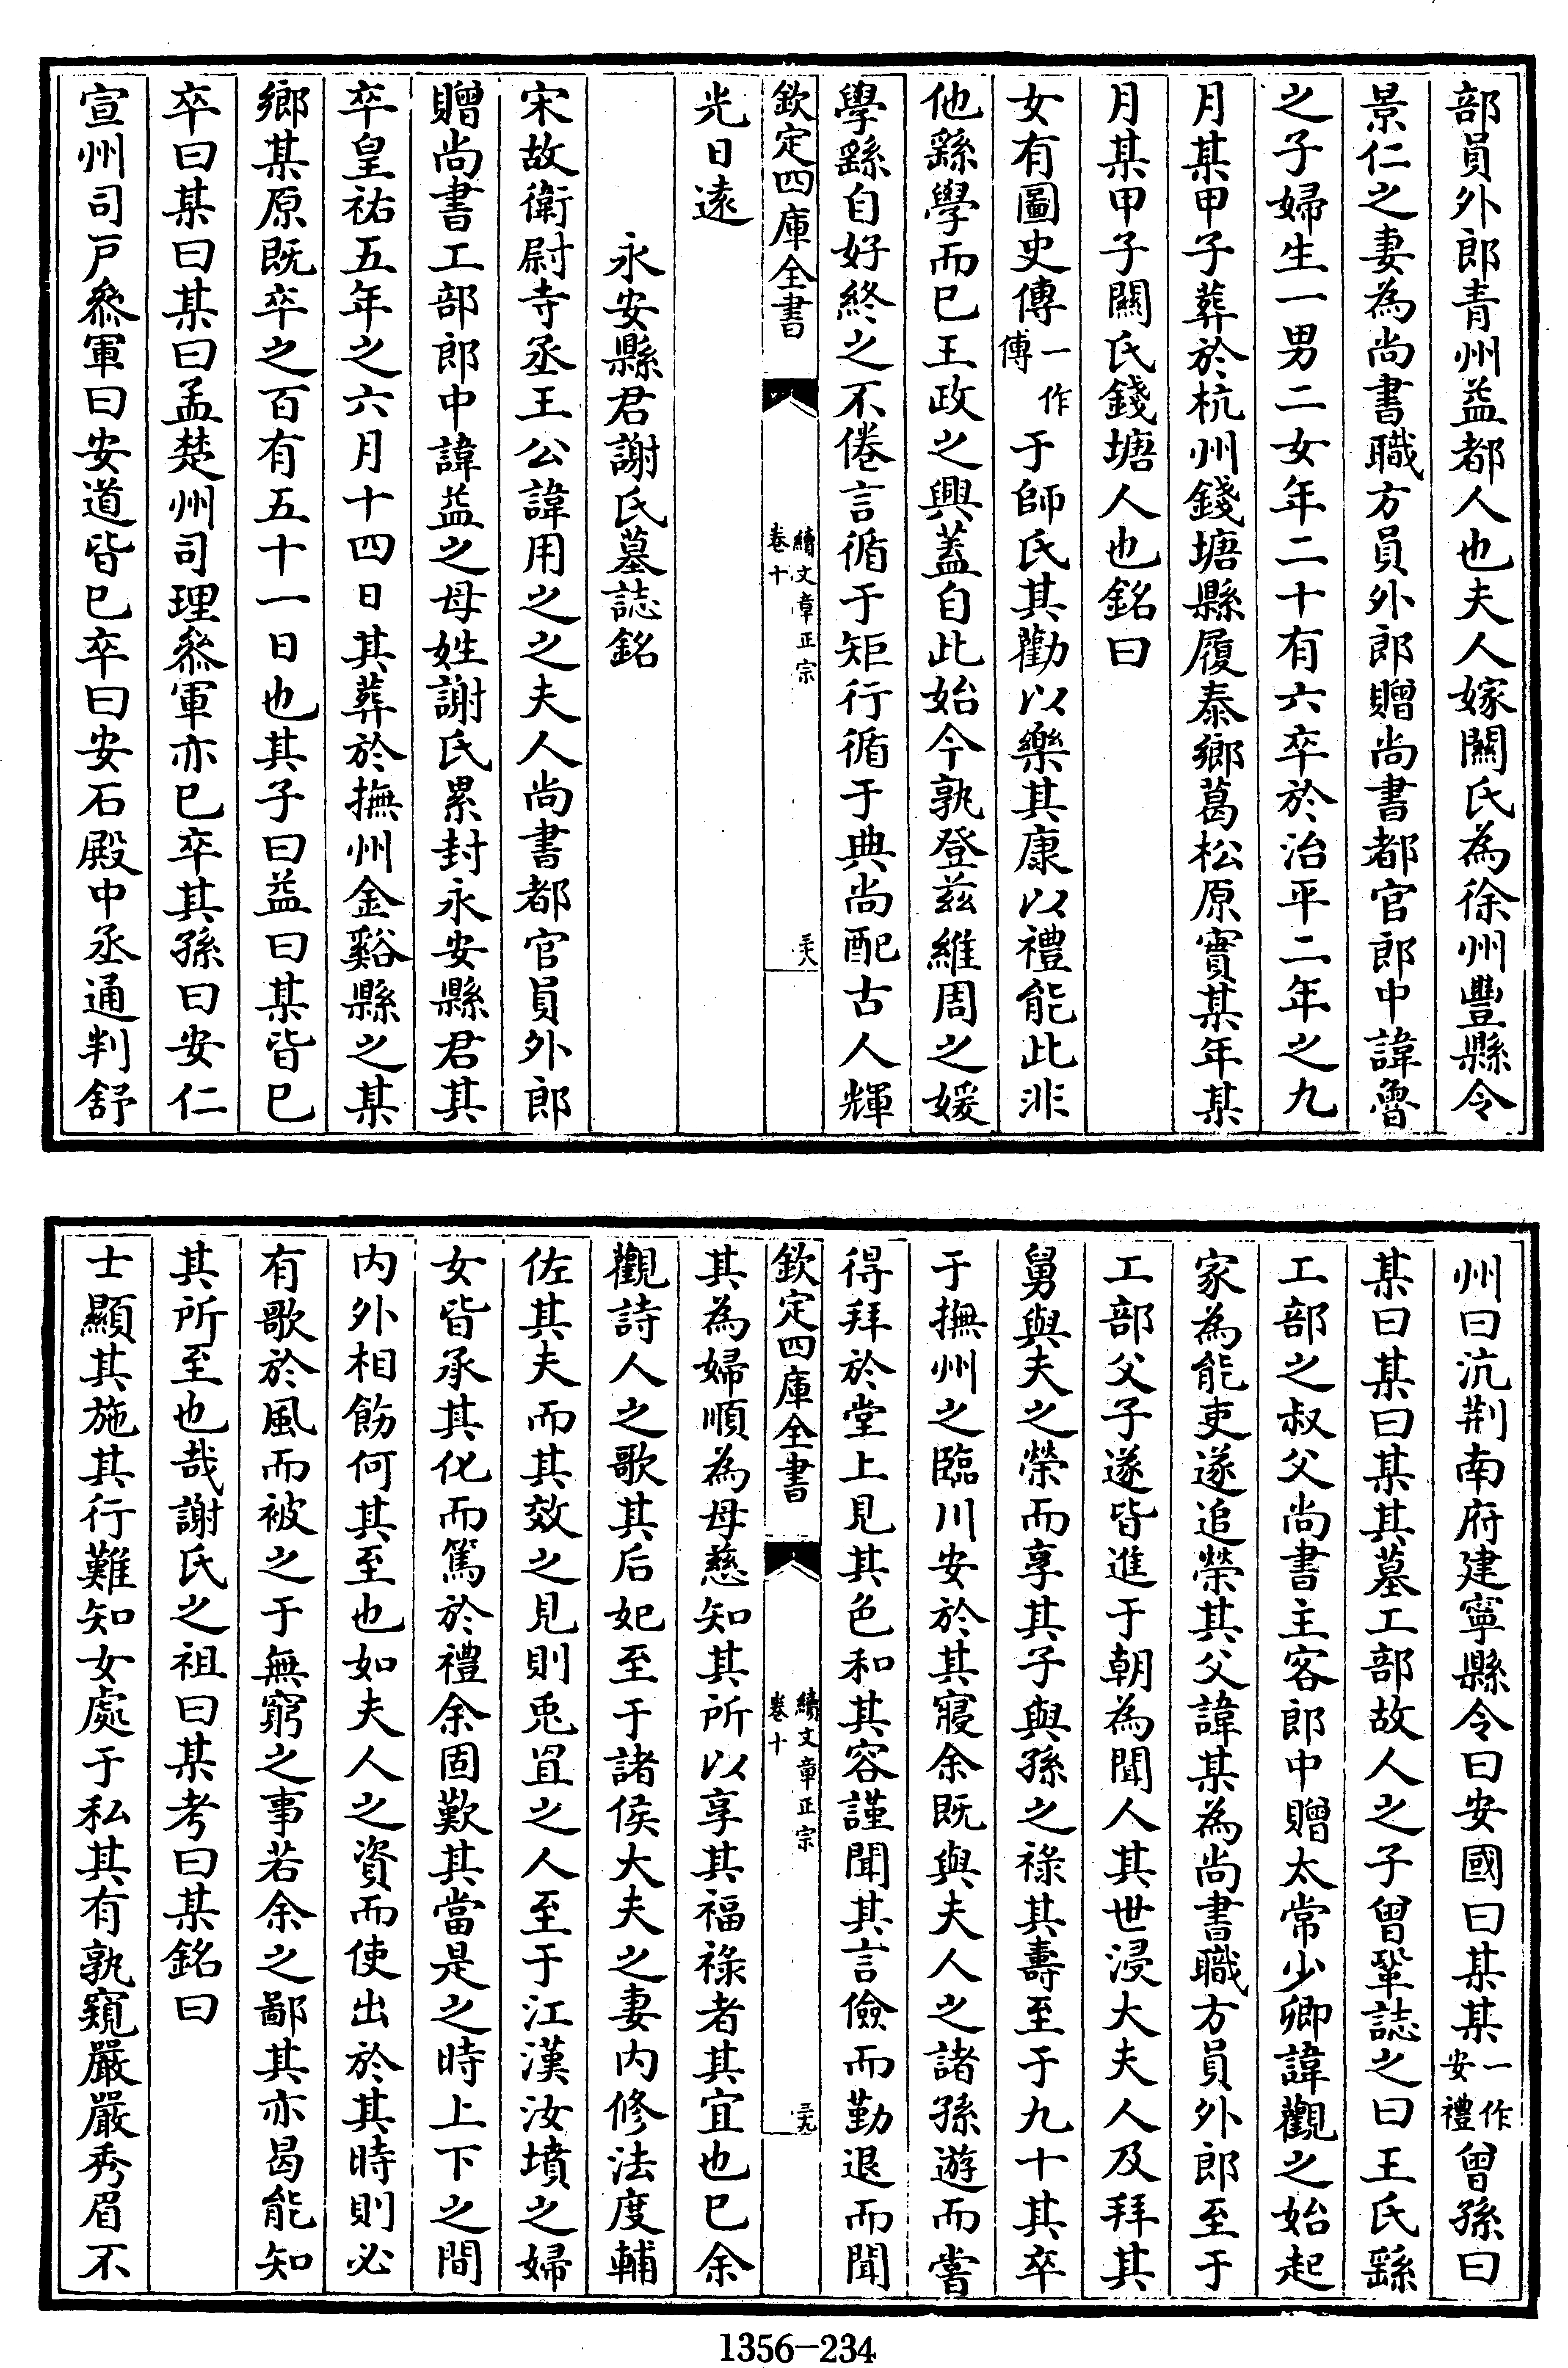 部員外郎青州益都人也夫人嫁關氏為徐州豐縣令
景仁之妻為尚書職方員外郎贈尚書都官郎中諱魯
之子婦生一男二女年二十有六卒於治平二年之九
月某甲子葬於杭州錢塘縣履泰鄉葛松原實某年某
月某甲子關氏錢塘人也銘曰
女有圖史傳一作傅于師氏其勸以樂其康以禮能此非
他繇學而已王政之興蓋自此始今孰登兹維周之媛
學繇自好終之不倦言循于矩行循于典尚配古人輝
欽定四庫全書
續文章正宗
卷十
三十八
光日遠
永安縣君謝氏墓誌銘
宋故衛尉寺丞王公諱用之之夫人尚書都官員外郎
贈尚書工部郎中諱益之母姓謝氏累封永安縣君其
卒皇祐五年之六月十四日其葬於撫州金谿縣之某
鄉某原既卒之百有五十一日也其子曰益曰某皆已
卒曰某曰某曰孟楚州司理叅軍亦已卒其孫曰安仁
宣州司戶叅軍曰安道皆已卒曰安石殿中丞通判舒
州曰沆荆南府建寧縣令曰安國曰某某一作安禮曾孫曰
某曰某曰某其墓工部故人之子曾鞏誌之曰王氏繇
工部之叔父尚書主客郎中贈太常少卿諱觀之始起
家為能吏遂追榮其父諱某為尚書職方員外郎至于
工部父子遂皆進于朝為聞人其世浸大夫人及拜其
舅與夫之榮而享其子與孫之祿其壽至于九十其卒
于撫州之臨川安於其寢余既與夫人之諸孫遊而嘗
得拜於堂上見其色和其容謹聞其言儉而勤退而聞
欽定四庫全書
續文章正宗
卷十
三十九
其為婦順為母慈知其所以享其福祿者其宜也已余
觀詩人之歌其后妃至于諸侯大夫之妻内修法度輔
佐其夫而其效之見則兎罝之人至于江漢汝墳之婦
女皆承其化而篤於禮余固歎其當是之時上下之間
内外相飭何其至也如夫人之資而使出於其時則必
有歌於風而被之于無窮之事若余之鄙其亦曷能知
其所至也哉謝氏之祖曰某考曰某銘曰
士顯其施其行難知女處于私其有孰窺嚴嚴秀眉不
1356—234